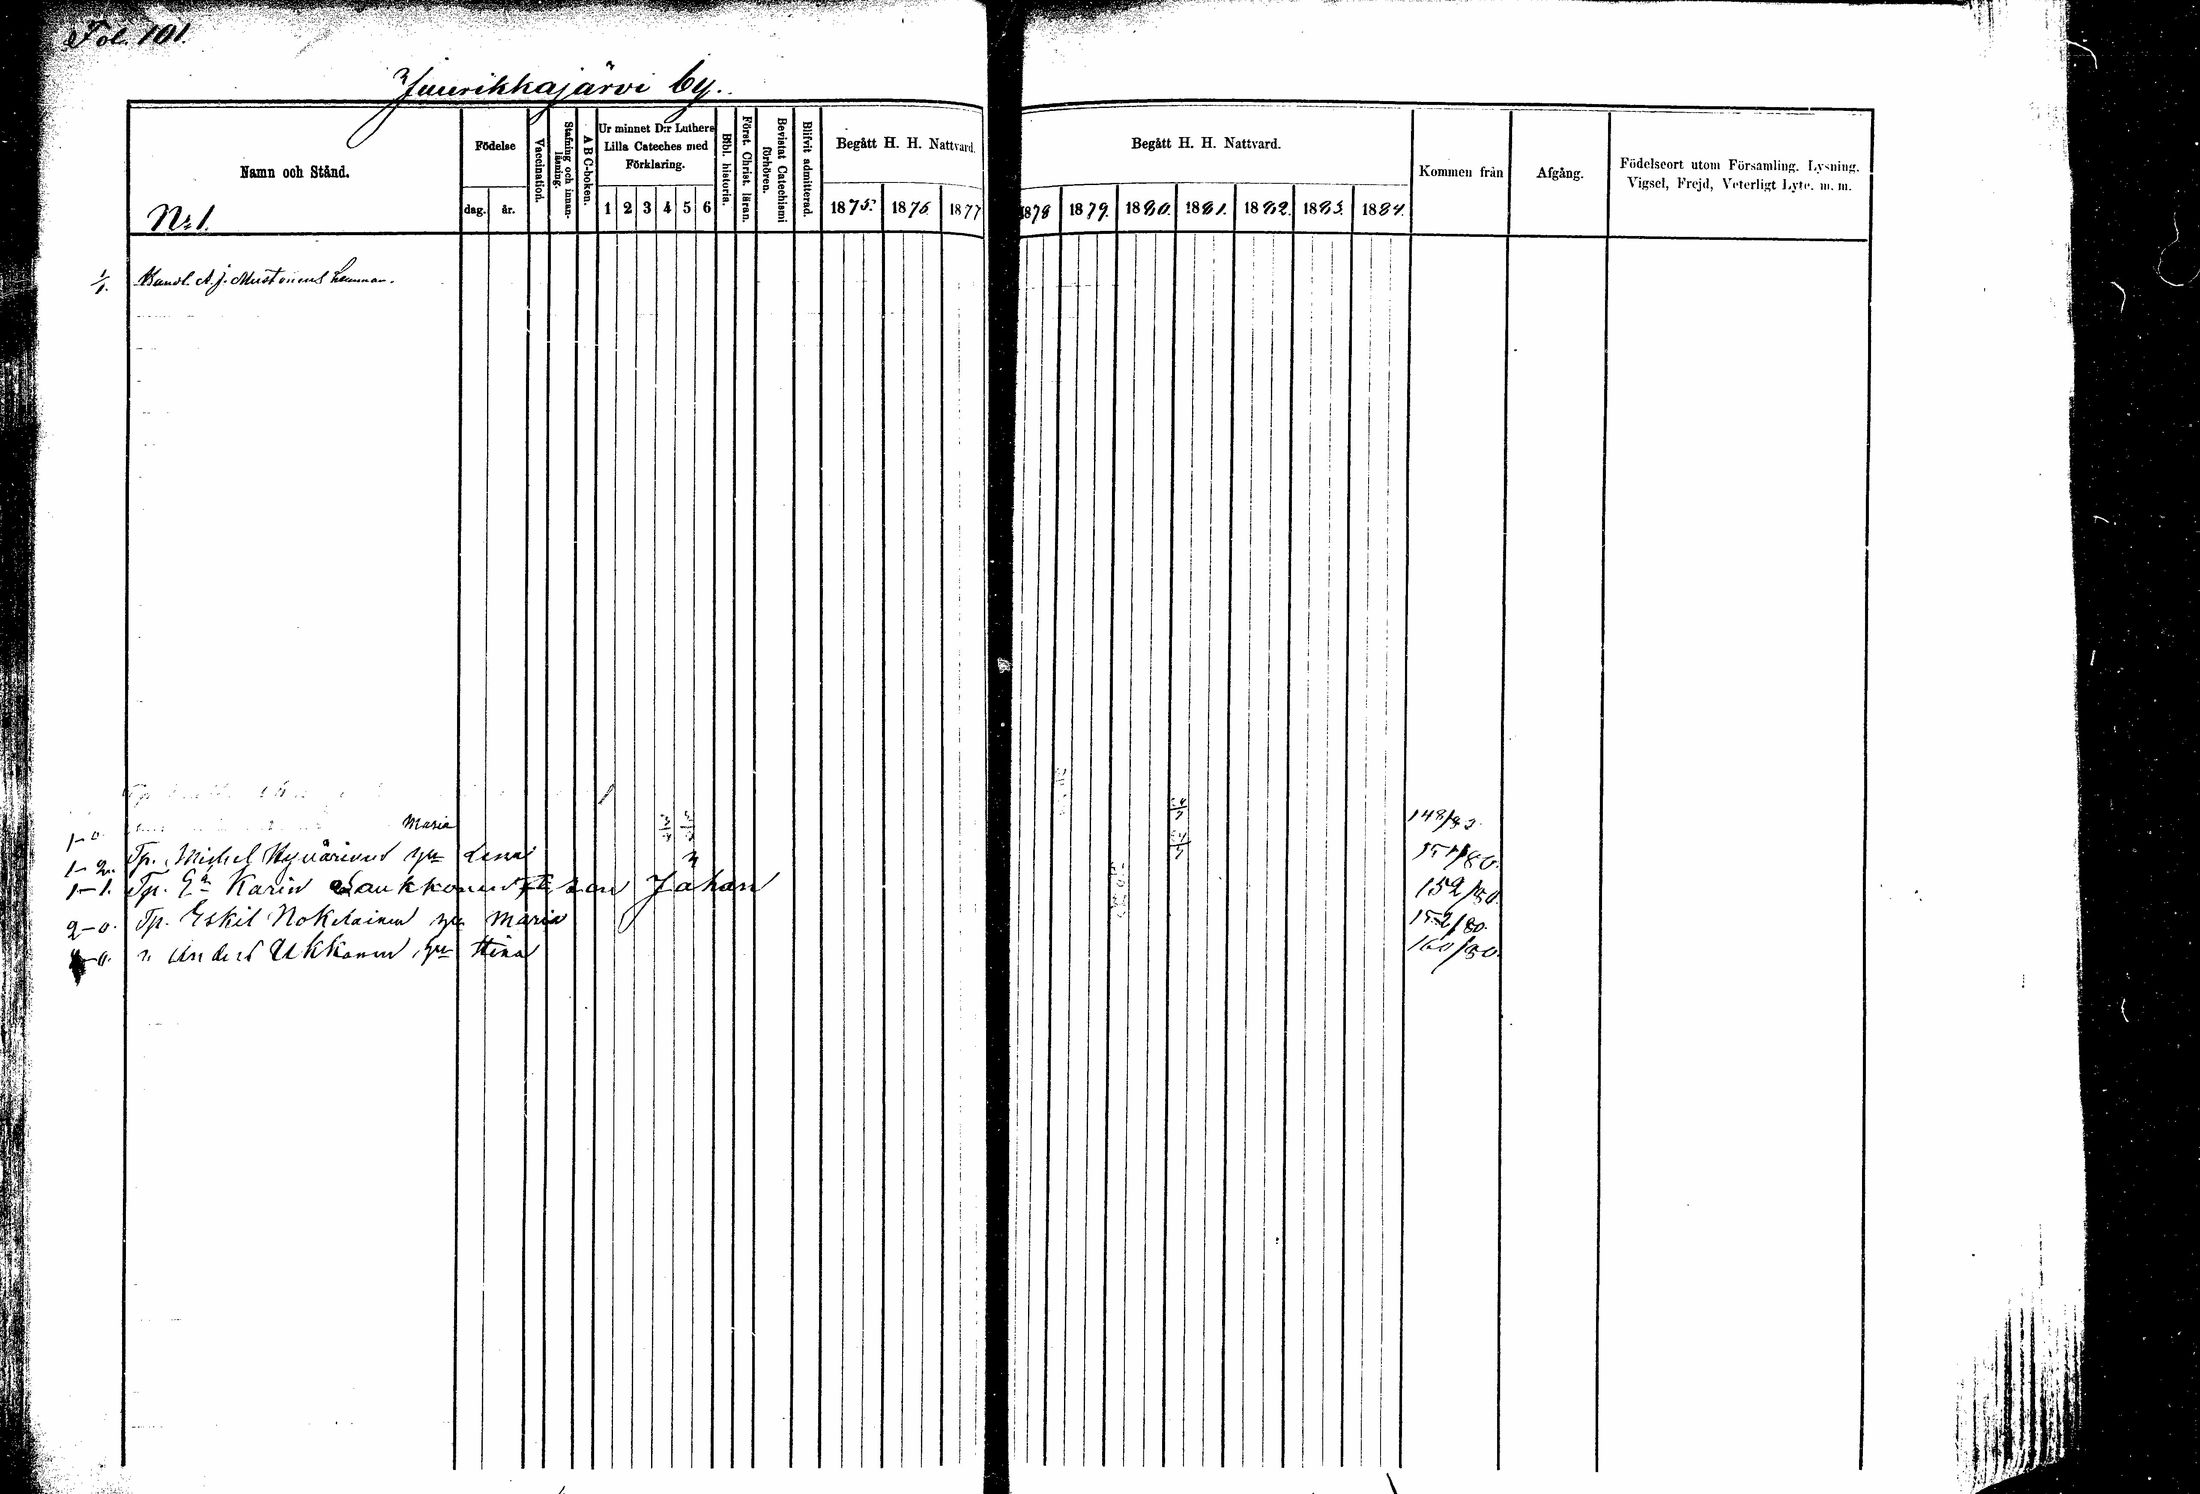 Fol. 101.
Juurikkajärvi by.
Namn och Stånd.
Födelse
dag.
år.
Vaccination.
Stafning och innan-läsning.
A B C-boken.
Ur minnet D:r Luthers Lilla Cateches med Förklaring.
1 2 3 4 5 6
Bibl. historia.
Först. Christ. läran.
Bevistat Catechismi förhören.
Blifvit admitterad.
Begått H. H. Nattvard.
1875. 1876. 1877
Begått H. H. Nattvard.
1878 1879. 1880. 1881. 1882. 1883. 1884.
Kommen från
Afgång.
Födelseort utom Församling. Lysning. Vigsel, Frejd, Veterligt Lyte. m. m.
No 1.
1/1. Handl. A. J. Mustonens hemman.
1-0. Maria 148/83.
1-2. Tp. Michel Hyvärinens Lena 151/80.
1-1. Tp. Karin Laukkonen son Johan 152/80.
2-0. Tp. Eskil Nokelainen Maria 152/80.
-0. " Anders Ukkonen Stina 160/80.